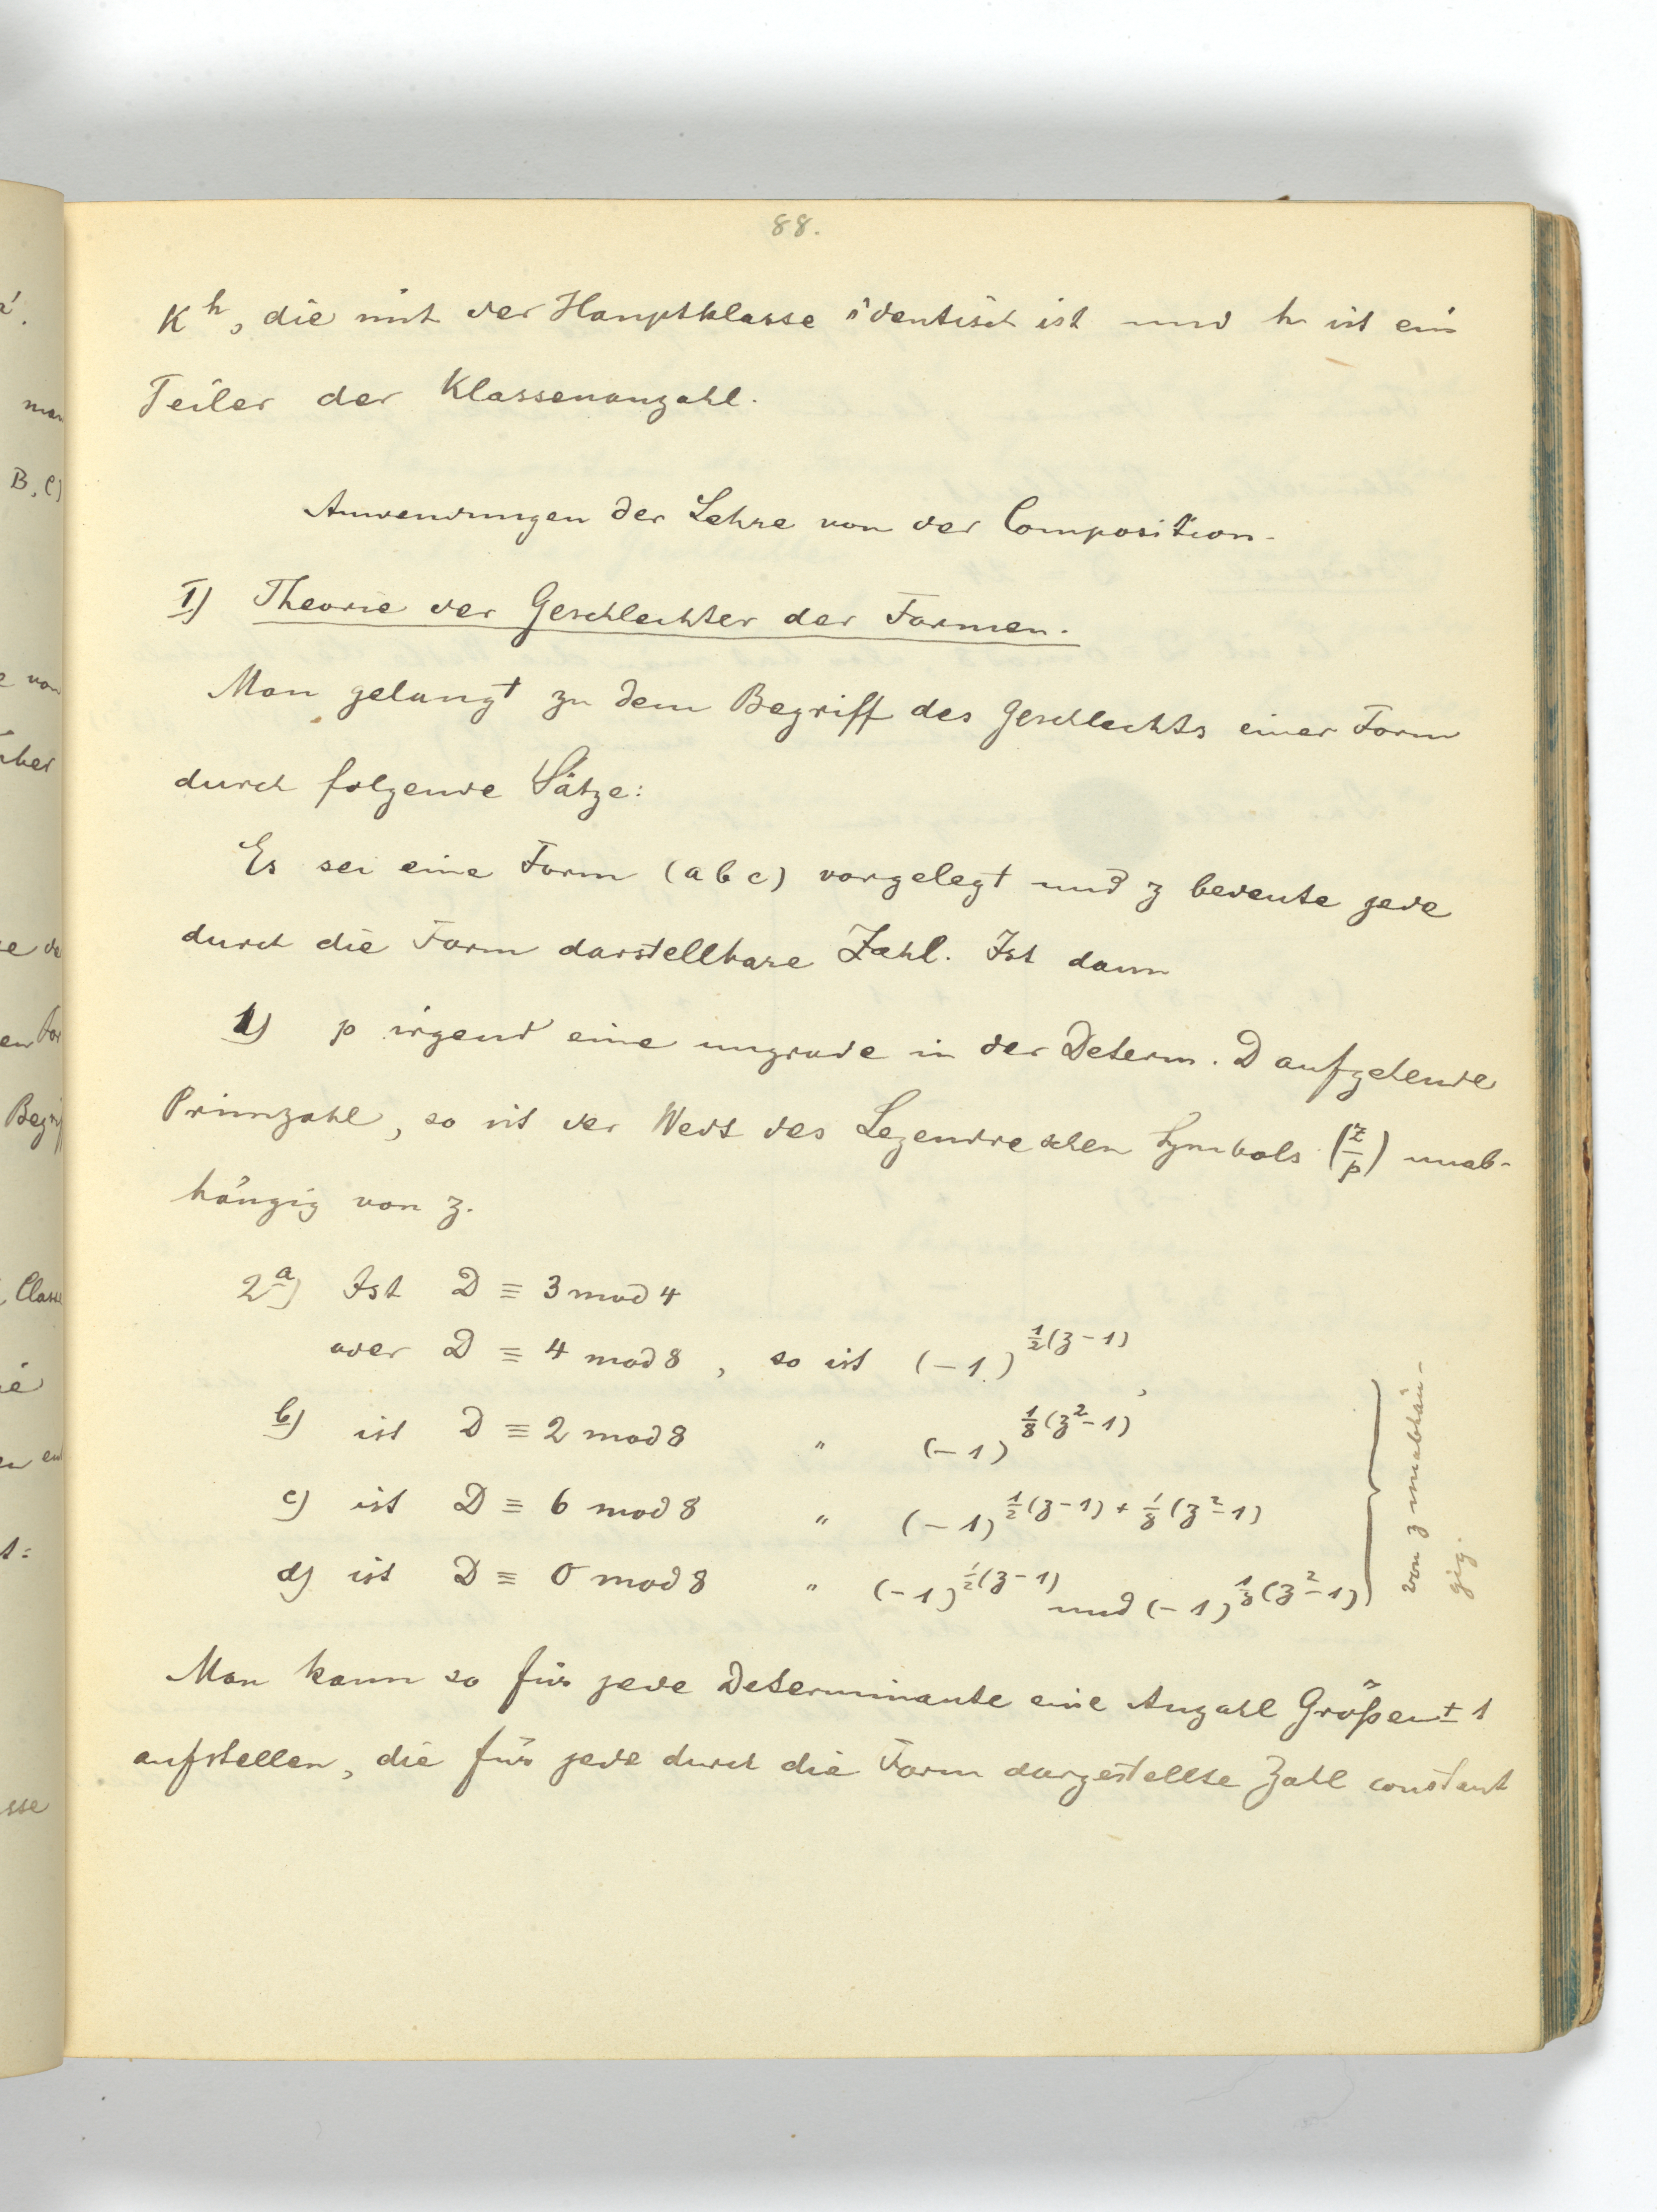 88.
K^h, die mit der Hauptklasse identisch ist und h ist ein
Teiler der Klassenanzahl.
Anwendungen der Lehre von der Composition.
I) Theorie der Geschlechter der Formen.
Man gelangt zu dem Begriff des Geschlechts einer Form
durch folgende Sätze:
Es sei eine Form (a b c) vorgelegt und z bedeute jede
durch die Form darstellbare Zahl. Ist dann
1) p irgend eine ungrade in der Determ. D aufgehende
Primzahl, so ist der Wert des Legendreschen Symbols (z/p) unab-
hängig von z.
2a) Ist D ≡ 3 mod 4
oder D ≡ 4 mod 8, so ist (-1)^{1/2(z-1)},
b) ist D ≡ 2 mod 8 " (-1)^{1/8(z²-1)}
c) ist D ≡ 6 mod 8 " (-1)^{1/2(z-1) + 1/8(z²-1)}
d) ist D ≡ 0 mod 8 " (-1)^{1/2(z-1)} und (-1)^{1/8(z²-1)}
von z unabhän-
gig.
Man kann so für jede Determinante eine Anzahl Größen ± 1
aufstellen, die für jede durch die Form dargestellte Zahl constant
man
B, C)
von
über
Begriff
Classe
sse